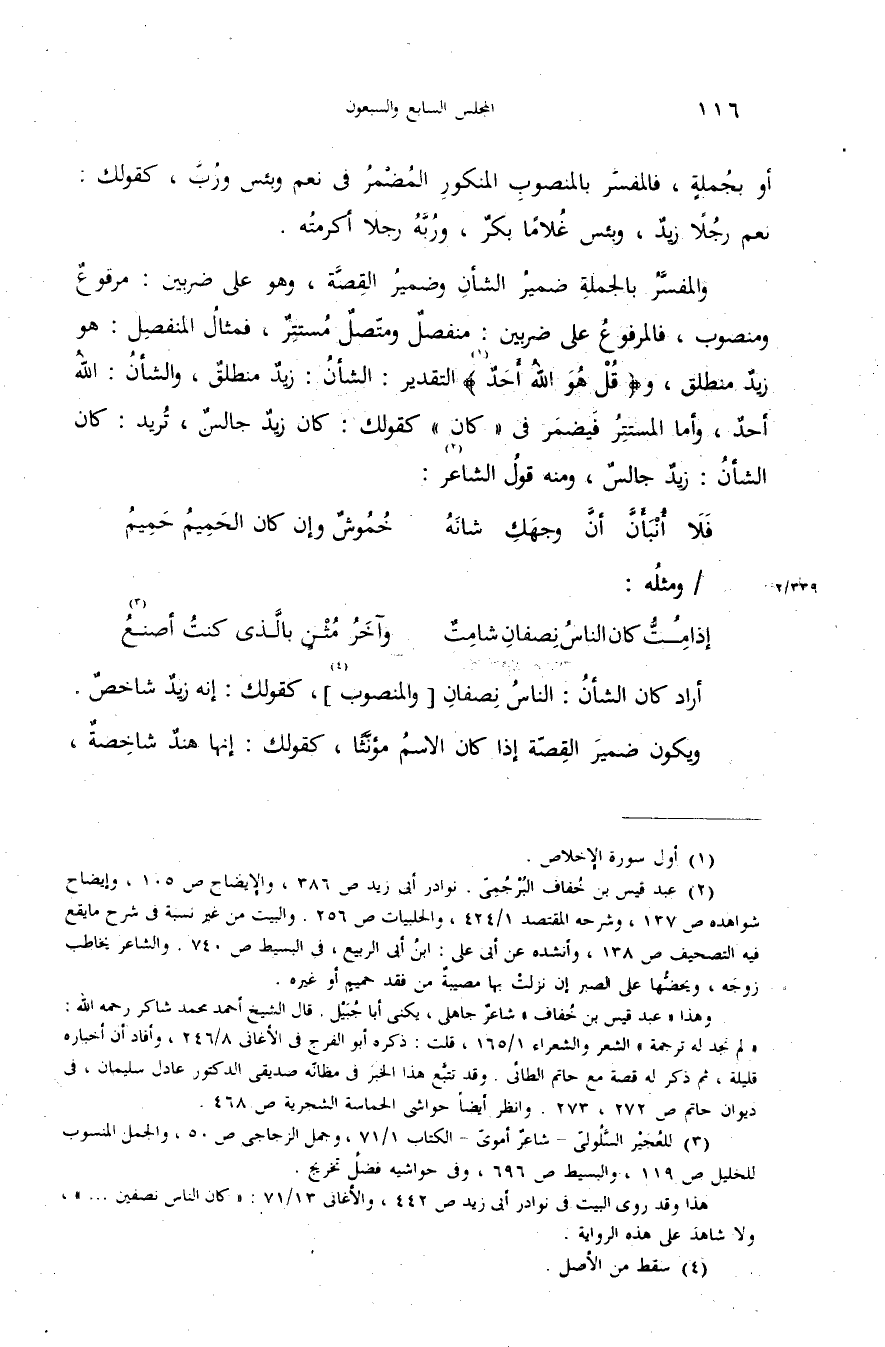 ١١٦ المجلس السابع والسبعون
أو بجُملةٍ ، فالمفسَّر بالمنصوبِ المنكورِ المُضْمرُ فى نعم وبئس ورُبَّ ، كقولك :
نعم رجُلًا زيدٌ ، وبئس غُلامًا بكرٌ ، ورُبَّهُ رجلا أكرمتُه .
والمفسَّرُ بالجملةِ ضميرُ الشأنِ وضميرُ القِصَّة ، وهو على ضربين : مرفوعٌ
ومنصوب ، فالمرفوعُ على ضربين : منفصلٌ ومتّصلٌ مُستتِرٌ ، فمثالُ المنفصِل : هو
زيدٌ منطلق ، و﴿ قُلْ هُوَ اللهُ أَحَدٌ ﴾(١) التقدير : الشأنُ : زيدٌ منطلقٌ ، والشأنُ : اللهُ
أحدٌ ، وأما المستتِرُ فَيضمَر فى « كان » كقولك : كان زيدٌ جالسٌ ، تُريد : كان
الشأنُ : زيدٌ جالسٌ ، ومنه قولُ الشاعر(٢) :
فَلَا أُنْبَأَنَّ أنَّ وجهَكِ شانَهُ خُمُوشٌ وإن كان الحَمِيمُ حَمِيمُ
/ ومثلُه : ٢/٣٣٩
إذامِـتُّ كان الناسُ نِصفانِ شامِتٌ وآخَرُ مُثْـنٍ بالَّـذى كنتُ أصنـعُ(٣)
أراد كان الشأنُ : الناسُ نِصفانِ [ والمنصوب ](٤) ، كقولك : إنه زيدٌ شاخصٌ .
ويكون ضميرَ القِصّة إذا كان الاسمُ مؤنَّثًا ، كقولك : إنها هندٌ شاخِصةٌ ،
(١) أول سورة الإخلاص .
(٢) عبد قيس بن خُفاف البُرْجُمِىّ . نوادر أبى زيد ص ٣٨٦ ، والإيضاح ص ١٠٥ ، وإيضاح
شواهده ص ١٣٧ ، وشرحه المقتصد ٤٢٤/١ ، والحلبيات ص ٢٥٦ . والبيت من غير نسبة فى شرح مايقع
فيه التصحيف ص ١٣٨ ، وأنشده عن أبى على : ابنُ أبى الربيع ، فى البسيط ص ٧٤٠ . والشاعر يخاطب
زوجَه ، ويحضُّها على الصبر إن نزلتْ بها مصيبةٌ من فقد حميمٍ أو غيره .
وهذا « عبد قيس بن خُفاف » شاعرٌ جاهلى ، يكنى أبا جُبَيْل . قال الشيخ أحمد محمد شاكر رحمه الله :
« لم نجد له ترجمة » الشعر والشعراء ١٦٥/١ ، قلت : ذكره أبو الفرج فى الأغانى ٢٤٦/٨ ، وأفاد أن أخباره
قليلة ، ثم ذكر له قصة مع حاتم الطائى . وقد تتبَّع هذا الخبرَ فى مظانّه صديقى الدكتور عادل سليمان ، فى
ديوان حاتم ص ٢٧٢ ، ٢٧٣ . وانظر أيضاً حواشى الحماسة الشجرية ص ٤٦٨ .
(٣) للعُجَيْر السَّلُولىّ – شاعرٌ أموىّ – الكتاب ٧١/١ ، وجمل الزجاجى ص ٥٠ ، والجمل المنسوب
للخليل ص ١١٩ ، والبسيط ص ٦٩٦ ، وفى حواشيه فضلُ تخريج .
هذا وقد روى البيت فى نوادر أبى زيد ص ٤٤٢ ، والأغانى ٧١/١٣ : « كان الناس نصفين ... » ،
ولا شاهدَ على هذه الرواية .
(٤) سقط من الأصل .